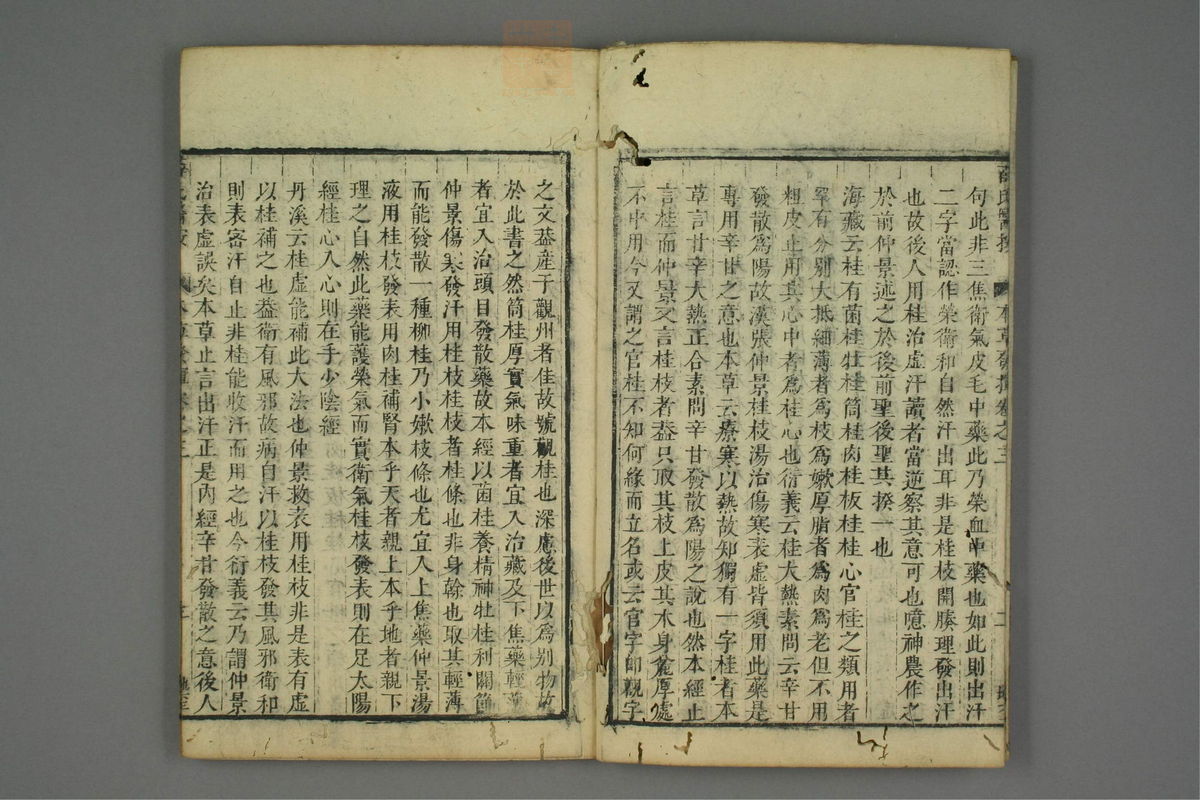 句此非三焦衛氣皮毛中藥此乃榮血中藥也如此則出汗
二字當認作榮衛和自然汗出耳非是桂枝開腠理發出汗
也故後人用桂治虛汗讀者當逆察其意可也噫神農作之
於前仲景述之於後前聖後聖其揆一也
海藏云桂有菌桂牡桂筒桂肉桂板桂桂心官桂之類用者
罕有分別大抵細薄者爲枝爲嫩厚脂者爲肉爲老但不用
粗皮止用其心中者爲桂心也衍義云桂大熱素問云辛甘
發散爲陽故漢張仲景桂枝湯治傷寒表虛皆須用此藥是
專用辛甘之意也本草云療寒以熱故知獨有一字桂者本
草言甘辛大熱正合素問辛甘發散爲陽之說也然本經止
言桂而仲景又言桂枝者蓋只取其枝上皮其木身麄厚處
不中用今又謂之官桂不知何緣而立名或云官字卽觀字
之文蓋產于觀州者佳故號觀桂也深慮後世以爲別物故
於此書之然筒桂厚實氣味重者宜入治藏及下焦藥輕薄
者宜入治頭目發散藥故本經以菌桂養精神牡桂利關節
仲景傷寒發汗用桂枝桂枝者桂條也非身幹也取其輕薄
而能發散一種柳桂乃小嫩枝條也尤宜入上焦藥仲景湯
液用桂枝發表用肉桂補腎本乎天者親上本乎地者親下
理之自然此藥能護榮氣而實衛氣桂枝發表則在足太陽
經桂心入心則在手少陰經
丹溪云桂虛能補此大法也仲景救表用桂枝非是表有虛
以桂補之也蓋衛有風邪故病自汗以桂枝發其風邪衛和
則表密汗自止非桂能收汗而用之也今衍義云乃謂仲景
治表虛誤矣本草止言出汗正是內經辛甘發散之意後人